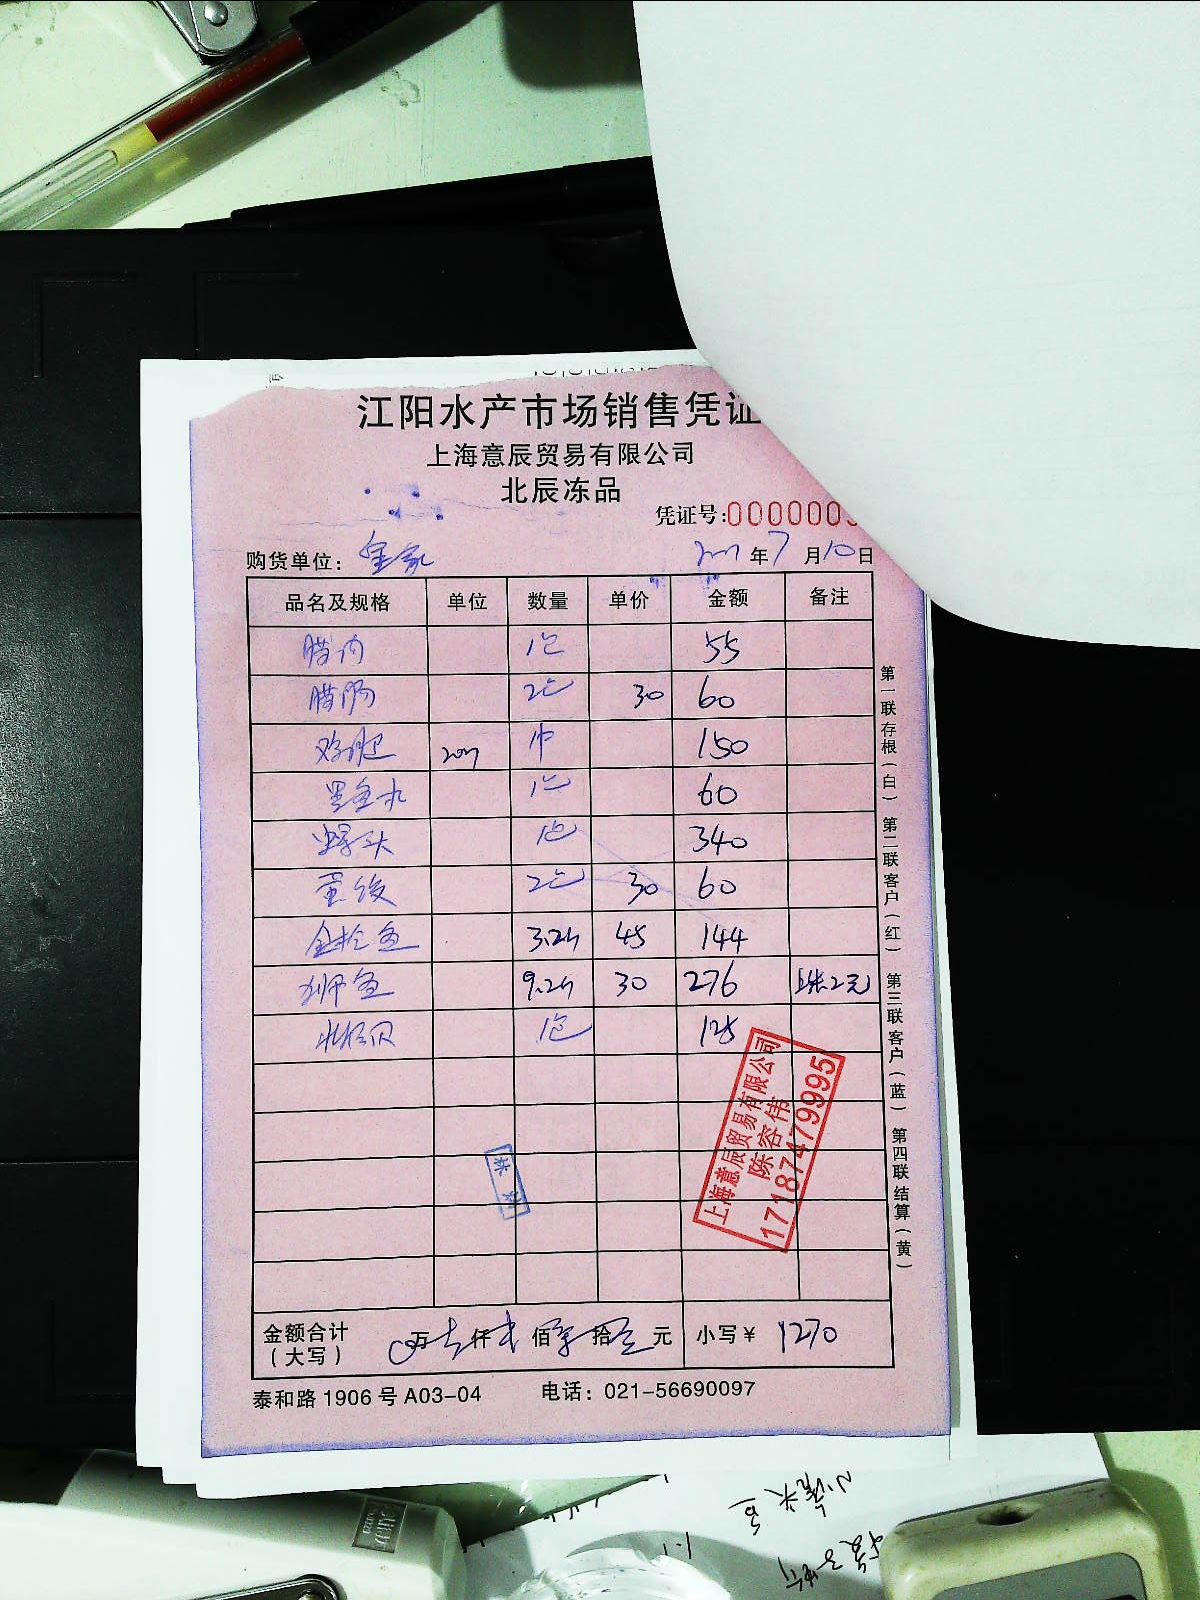 江阳水产市场销售凭证
上海意辰贸易有限公司
北辰冻品
凭证号:0000003
购货单位: 皇家 年7月10日
品名及规格 单位 数量 单价 金额 备注
腊肉 1包 55
腊肠 2包 30 60
鸡翅 20斤 1个 150
墨鱼丸 1包 60
螺头 1包 340
蛋饺 2包 30 60
金枪鱼 3.2斤 45 144
鱼 9.2斤 30 276 2元
北极贝 1包 125
上海意辰贸易有限公司
陈容伟
17187479995
金额合计(大写) 0万 仟 佰 拾 元 小写¥ 1270
泰和路1906号A03-04 电话: 021-56690097
第一联存根(白) 第二联客户(红) 第三联客户(蓝) 第四联结算(黄)